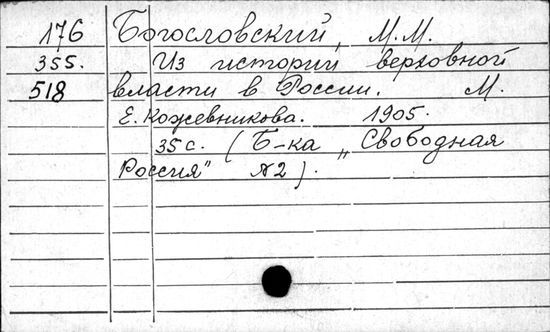 176 Богословский, М.М.
355. Из истории верховной
518 власти в России. М.
Е. Кожевникова. 1905.
35 с. (Б-ка „Свободная
Россия" №2).